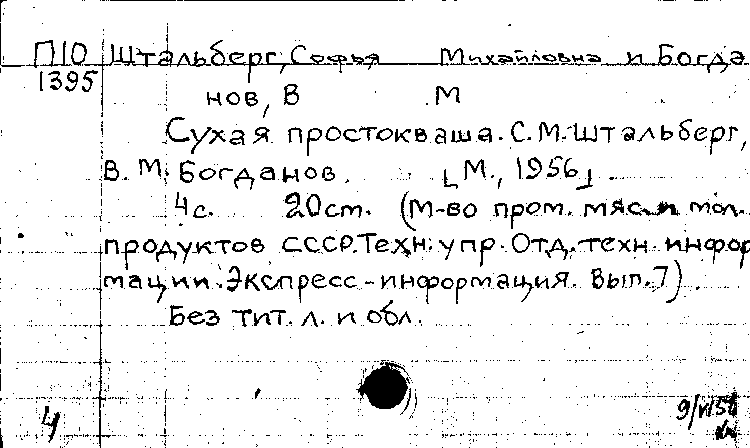 П10 Штальберг, Софья Михайловна и Богда
1395
нов, В М
Сухая простокваша. С.М. Штальберг,
В. М. Богданов. [М., 1956].
4с. 20cm. (М-во пром. мяс. и мол.
продуктов СССР. Техн. упр. Отд. техн. инфор
мации. Экспресс-информация. Вып. 7).
Без тит. л. и обл.
4